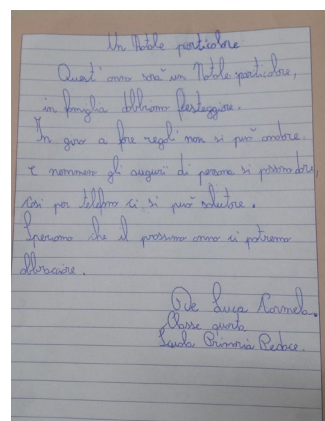 Un Natale particolare
Quest' anno sarà un Natale particolare,
in famiglia dobbiamo festeggiare.
In giro a fare regali non si può andare
e nemmeno gli auguri di persona si possono dare,
così per telefono ci si può salutare.
Speriamo che il prossimo anno ci potremo
abbracciare.
De Luca Carmela.
Classe quarta
Scuola Primaria Pedace.